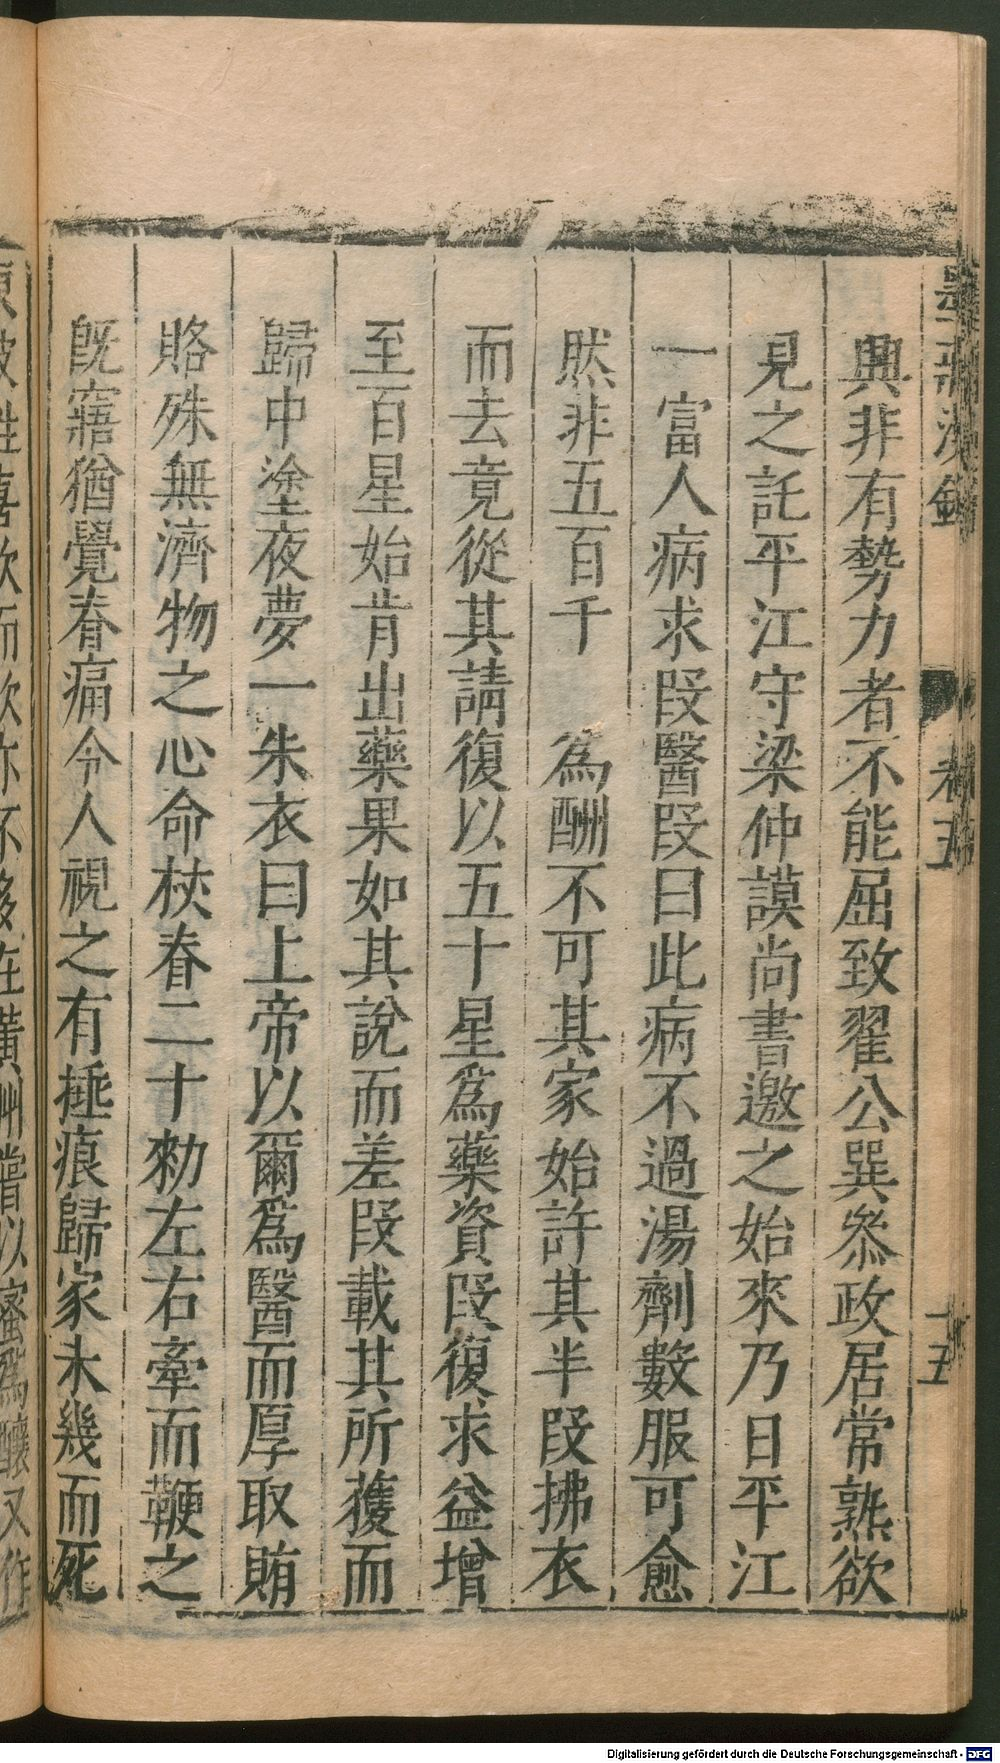 墨莊漫錄 卷五 十五
興非有勢力者不能屈致翟公巽叅政居常熟欲
見之託平江守梁仲謨尚書邀之始來乃日平江
一富人病求叚醫叚曰此病不過湯劑數服可愈
然非五百千 為酬不可其家始許其半叚拂衣
而去竟從其請復以五十星爲藥資叚復求益增
至百星始肯出藥果如其說而差叚載其所獲而
歸中塗夜夢一朱衣曰上帝以爾爲醫而厚取賄
賂殊無濟物之心命杖脊二十勑左右牽而鞭之
旣寤猶覺脊痛令人視之有捶痕歸家未幾而死
東坡性喜飲而飲亦不多在黃州嘗以蜜爲釀又作
Digitalisierung gefördert durch die Deutsche Forschungsgemeinschaft - DFG